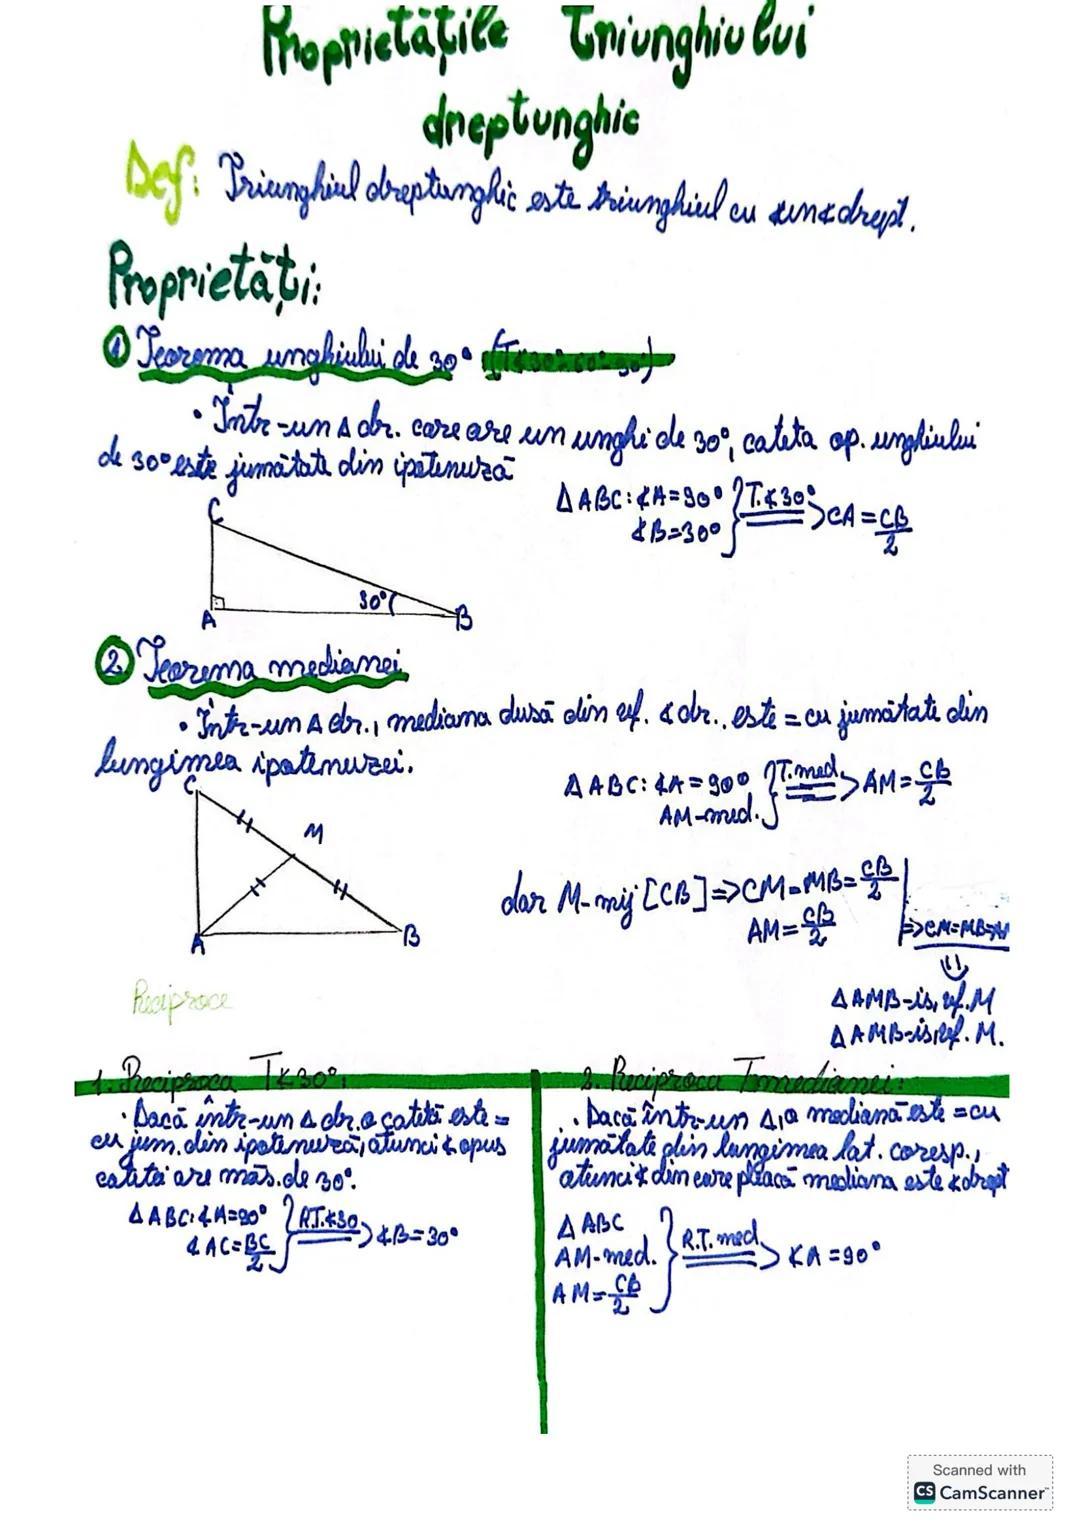 Proprietățile Triunghiului
dreptunghic
Def: Triunghiul dreptunghic este triunghiul cu un ∢ drept.
Proprietăți:
① Teorema unghiului de 30° (T∢30°-60°-90°)
• Într-un Δ dr. care are un unghi de 30°, cateta op. unghiului
de 30° este jumătate din ipotenuză
Δ ABC: ∢A=90° } T.∢30° => CA = CB/2
∢B=30°
C
30°
A
B
② Teorema medianei
• Într-un Δ dr., mediana dusă din vf. ∢ dr., este = cu jumătate din
lungimea ipotenuzei.
Δ ABC: ∢A = 90° } T.med. => AM = CB/2
AM-med.
C
M
A
B
dar M-mij [CB] => CM=MB= CB/2
AM= CB/2
=> CM=MB=
Δ AMB-is, vf. M
Δ AMB-is, vf. M.
Reciproce
1. Reciproca T∢30°:
• Dacă într-un Δ dr. o catetă este =
cu jum. din ipotenuză, atunci ∢ opus
catetei are măs. de 30°.
Δ ABC: ∢A=90° } R.T.∢30 => ∢B=30°
∢ AC= BC/2
2. Reciproca T. medianei:
• Dacă într-un Δ, o mediană este = cu
jumătate din lungimea lat. coresp.,
atunci ∢ din care pleacă mediana este ∢ drept
Δ ABC
AM-med. } R.T. med. => ∢A = 90°
AM= CB/2
Scanned with
CS CamScanner